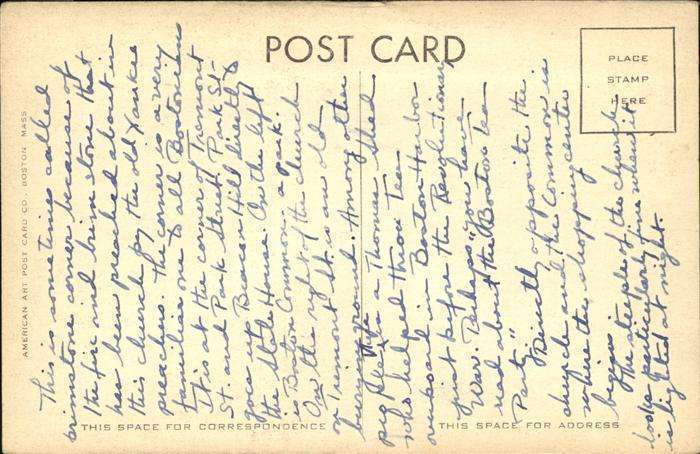 POST CARD
PLACE
STAMP
HERE
AMERICAN ART POST CARD CO., BOSTON, MASS
This is sometimes called
brimstone corner because of
the fire and brim stone that
has been preached about in
this church by the old Yankee
preachers. The corner is a very
familiar one to all Bostonians
It is at the corner of Tremont
St. and Park Street. Park St.
goes up Beacon Hill directly to
the State House. On the left
is Boston Common, a park.
On the right of the church
on Tremont St. is an old
burying ground. Among other
people is a Thomas
who helped throw Tea
overboard in Boston Harbor
just before the Revolutionary
War. Perhaps you have
read about the "Boston Tea
Party"
Directly opposite the
church and the Common is
where the shopping center
begins
The steeple of the church
looks particularly fine when it
is lighted at night.
THIS SPACE FOR CORRESPONDENCE
THIS SPACE FOR ADDRESS